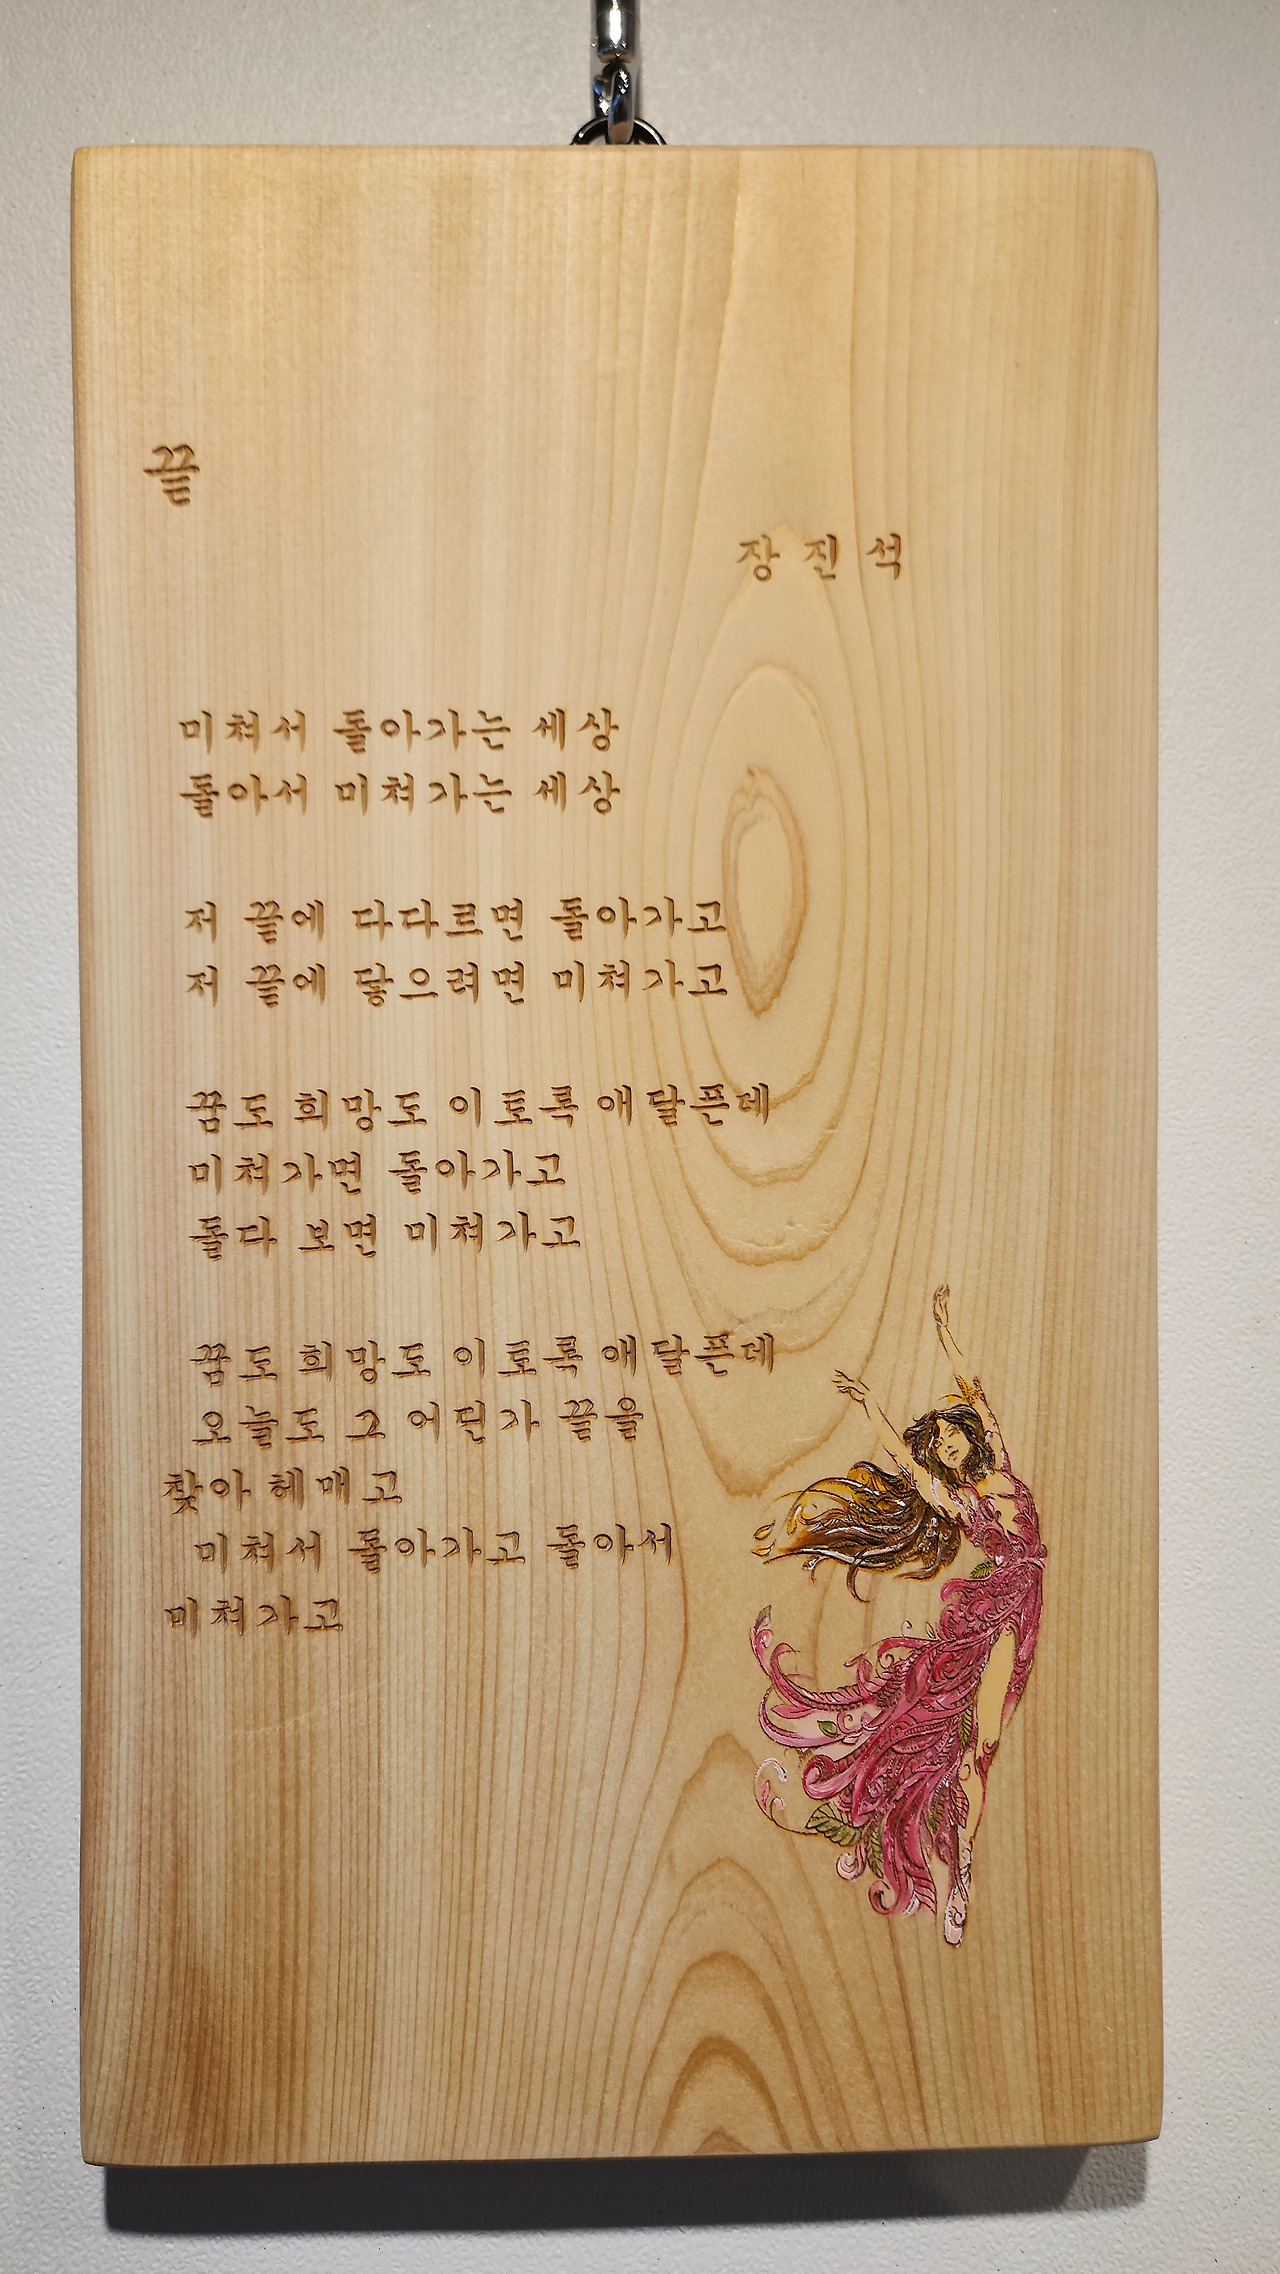 끝
장 진 석
미쳐서 돌아가는 세상
돌아서 미쳐가는 세상
저 끝에 다다르면 돌아가고
저 끝에 닿으려면 미쳐가고
꿈도 희망도 이토록 애달픈데
미쳐가면 돌아가고
돌다 보면 미쳐가고
꿈도 희망도 이토록 애달픈데
오늘도 그 어딘가 끝을
찾아 헤매고
미쳐서 돌아가고 돌아서
미쳐가고